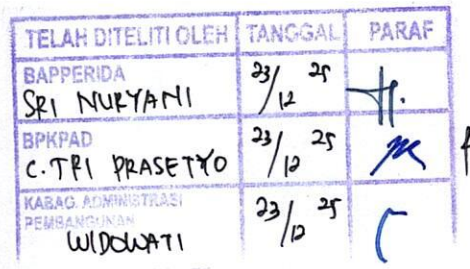 TELAH DITELITI OLEH TANGGAL PARAF
BAPPERIDA
SRI NURYANI 23/12 25
BPKPAD
C. TRI PRASETYO 23/12 25
KABAG. ADMINISTRASI
PEMBANGUNAN
WIDOWATI 23/12 25